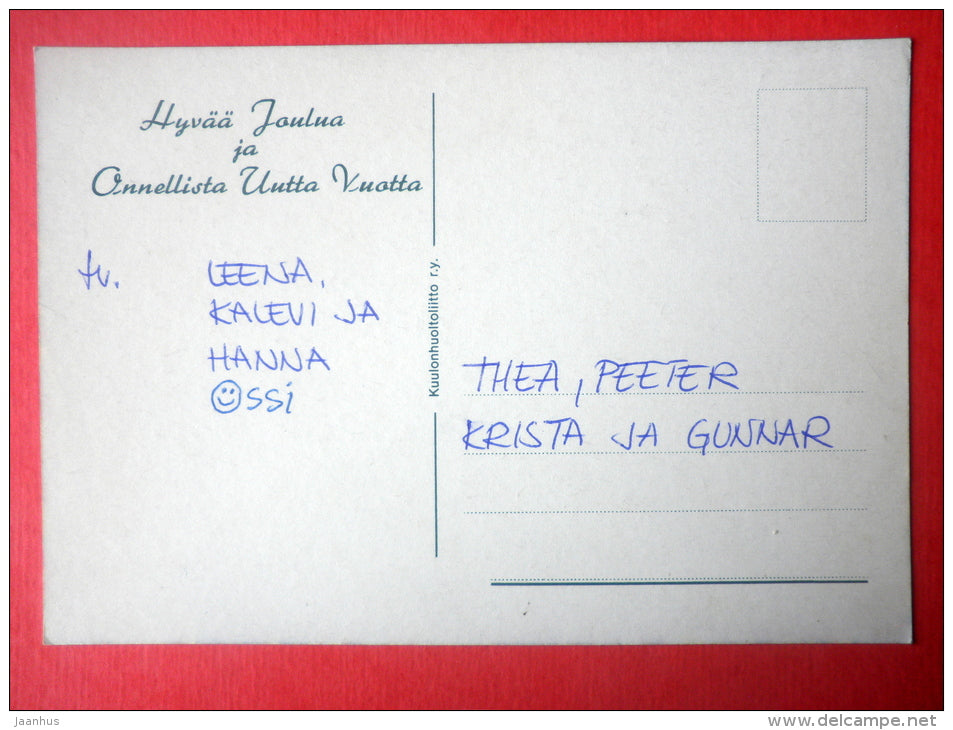 Hyvää Joulua
ja
Onnellista Uutta Vuotta
tv. LEENA,
KALEVI JA
HANNA
☺SSi
Kuulonhuoltoliitto r.y.
THEA, PEETER
KRISTA JA GUNNAR
Jaanhus
delcampe.net